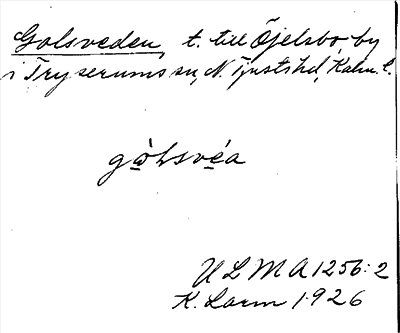 Golsveden, t. till Öjelsbo, by
i Tryserums sn, N. Tjusts hd, Kalm. l.
gòlsvéa
ULMA 1256:2
K. Larm 1926